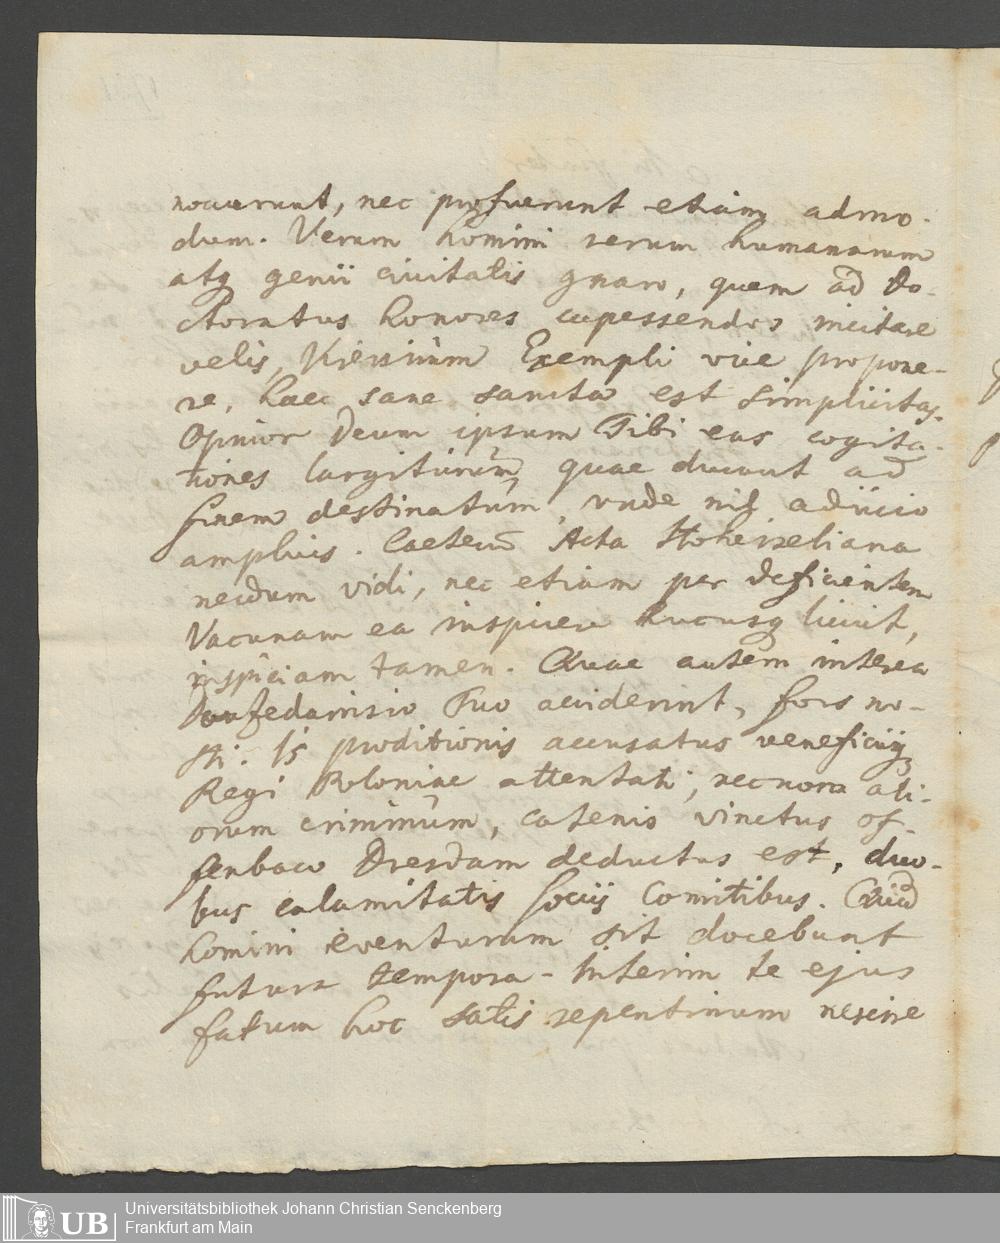 nocuerunt, nec profuerunt etiam admo-
dum. Verum homini rerum humanarum
atq genii civitatis gnaro, quem ad Do-
ctoratus honores capessendos incitare
velis, Exempli vice propone-
re, haec sane sancta est simplicitas.
Opinor Deum ipsum Tibi eas cogita-
tiones largiturum, quae ducunt ad
finem destinatum, unde nil adiicio
amplius. Caeterum Acta
necdum vidi, nec etiam per deficientem
Vacunam ea inspicere hucusq licuit,
inspiciam tamen. Quae autem interea
Tuo acciderint, fors no-
sti. Is proditionis accusatus veneficiiq
Regi Poloniae attentati, necnon ali-
orum criminum, catenis vinctus Of-
fenbaco Dresdam deductus est, duo-
bus calamitatis sociis Comitibus. Quid
homini eventurum sit docebunt
futura tempora - Interim te ejus
fatum hoc satis repentinum nescire
Universitätsbibliothek Johann Christian Senckenberg
Frankfurt am Main
UB